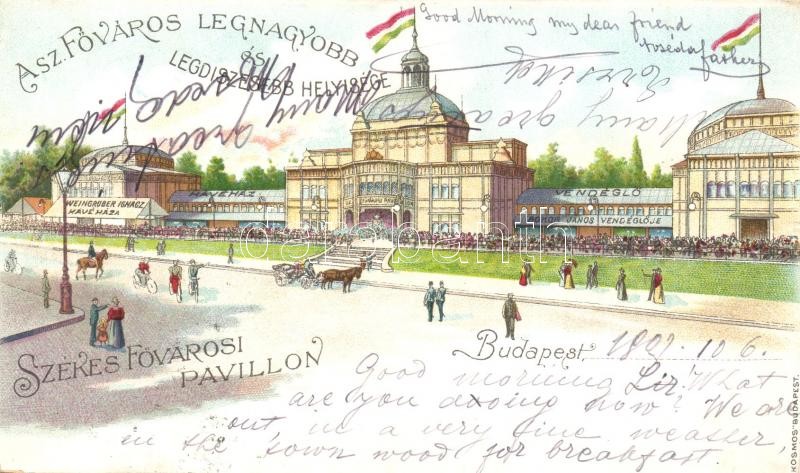 A SZ. FŐVÁROS LEGNAGYOBB
ÉS
LEGDÍSZESEBB HELYISÉGE
Good Morning my dear friend
father
Many greatings
Many greatings
WEINGRUBER IGNÁCZ
KÁVÉHÁZA
KÁVÉHÁZ
VENDÉGLŐ
JÁNOS VENDÉGLŐJE
darabanth.com
SZÉKES FŐVÁROSI
PAVILLON
Budapest, 10 6.
Good morning Sir! What
are you dooing now? We are
out in a very fine weather,
in the town wood for breakfast.
KOSMOS BUDAPEST.